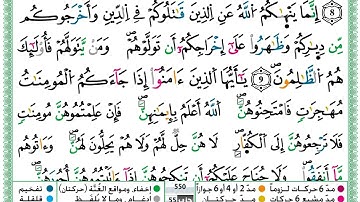 ﴿8﴾ إِنَّمَا يَنْهَىٰكُمُ ٱللَّهُ عَنِ ٱلَّذِينَ قَٰتَلُوكُمْ فِي ٱلدِّينِ وَأَخْرَجُوكُم
مِّن دِيَٰرِكُمْ وَظَٰهَرُوا۟ عَلَىٰٓ إِخْرَاجِكُمْ أَن تَوَلَّوْهُمْ ۚ وَمَن يَتَوَلَّهُمْ فَأُو۟لَٰٓئِكَ
هُمُ ٱلظَّٰلِمُونَ ﴿9﴾ يَٰٓأَيُّهَا ٱلَّذِينَ ءَامَنُوٓا۟ إِذَا جَآءَكُمُ ٱلْمُؤْمِنَٰتُ
مُهَٰجِرَٰتٍ فَٱمْتَحِنُوهُنَّ ۖ ٱللَّهُ أَعْلَمُ بِإِيمَٰنِهِنَّ ۖ فَإِنْ عَلِمْتُمُوهُنَّ مُؤْمِنَٰتٍ
فَلَا تَرْجِعُوهُنَّ إِلَى ٱلْكُفَّارِ ۖ لَا هُنَّ حِلٌّ لَّهُمْ وَلَا هُمْ يَحِلُّونَ لَهُنَّ ۖ وَءَاتُوهُم
مَّآ أَنفَقُوا۟ ۚ وَلَا جُنَاحَ عَلَيْكُمْ أَن تَنكِحُوهُنَّ إِذَآ ءَاتَيْتُمُوهُنَّ أُجُورَهُنَّ
مدّ 6 حركات لزوماً مدّ 2 أو 4 أو 6 جوازاً 550 إخفاء، ومواقع الغُنَّة (حركتان) تفخيم
مدّ مشبع 6 حركات مدّ حركتان إدغام، وما لا يُلفظ قلقلة